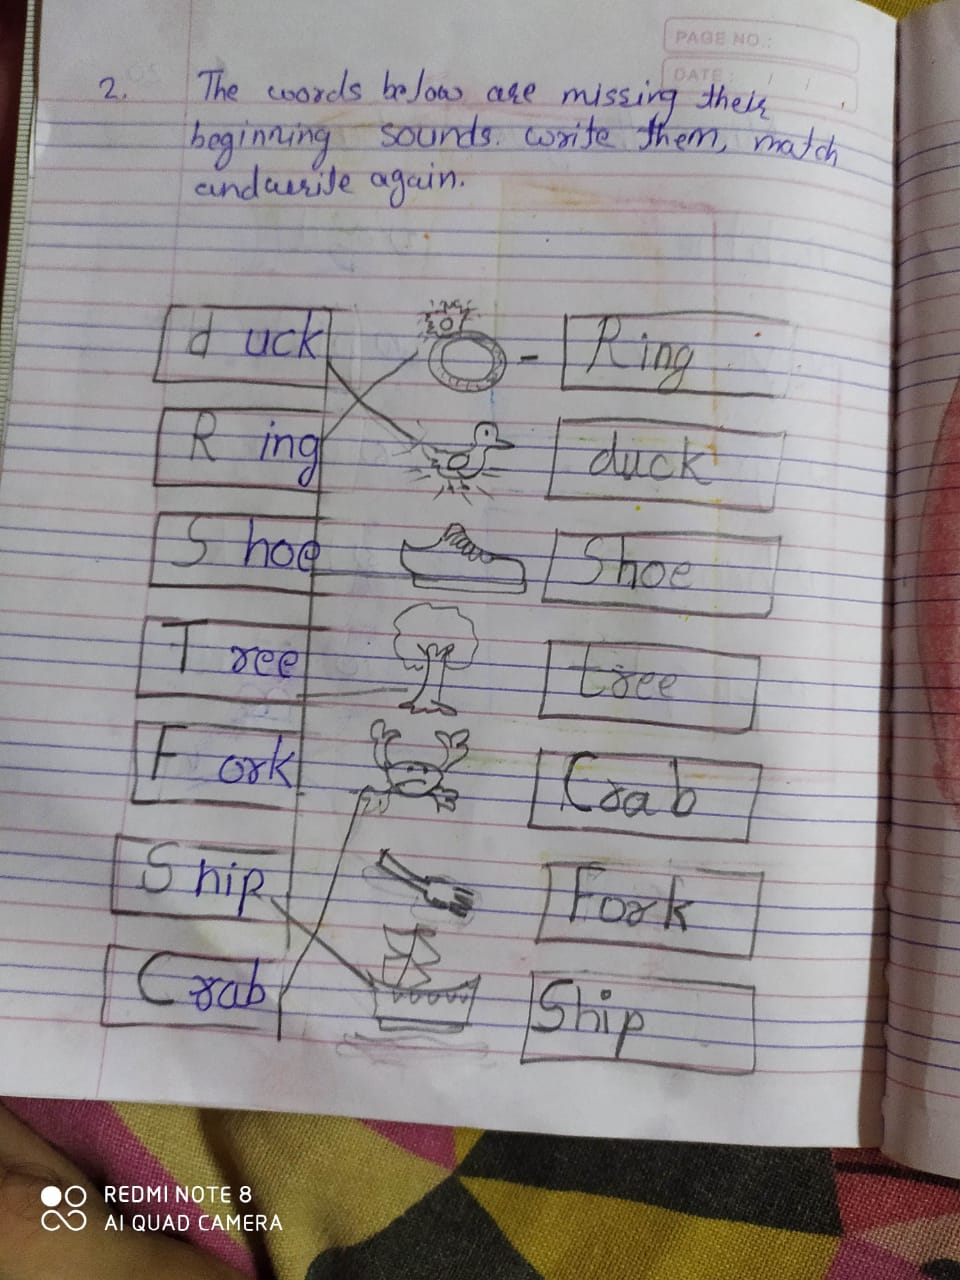 PAGE NO.:
DATE: / /
2. The words below are missing their
beginning sounds. write them, match
and write again.
d uck
Ring
R ing
duck
S hoe
Shoe
T ree
tree
F ork
Crab
S hip
Fork
C rab
Ship
REDMI NOTE 8
AI QUAD CAMERA